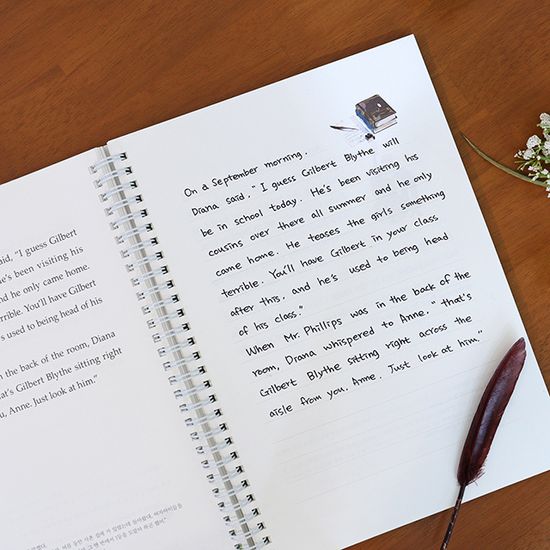 said, "I guess Gilbert
he's been visiting his
nd he only came home.
rrible. You'll have Gilbert
s used to being head of his
n the back of the room, Diana
at's Gilbert Blythe sitting right
u, Anne. Just look at him."
On a September morning,
Diana said, "I guess Gilbert Blythe will
be in school today. He's been visiting his
cousins over there all summer and he only
came home. He teases the girls something
terrible. You'll have Gilbert in your class
after this, and he's used to being head
of his class."
When Mr. Phillips was in the back of the
room, Diana whispered to Anne. "that's
Gilbert Blythe sitting right across the
aisle from you, Anne. Just look at him."